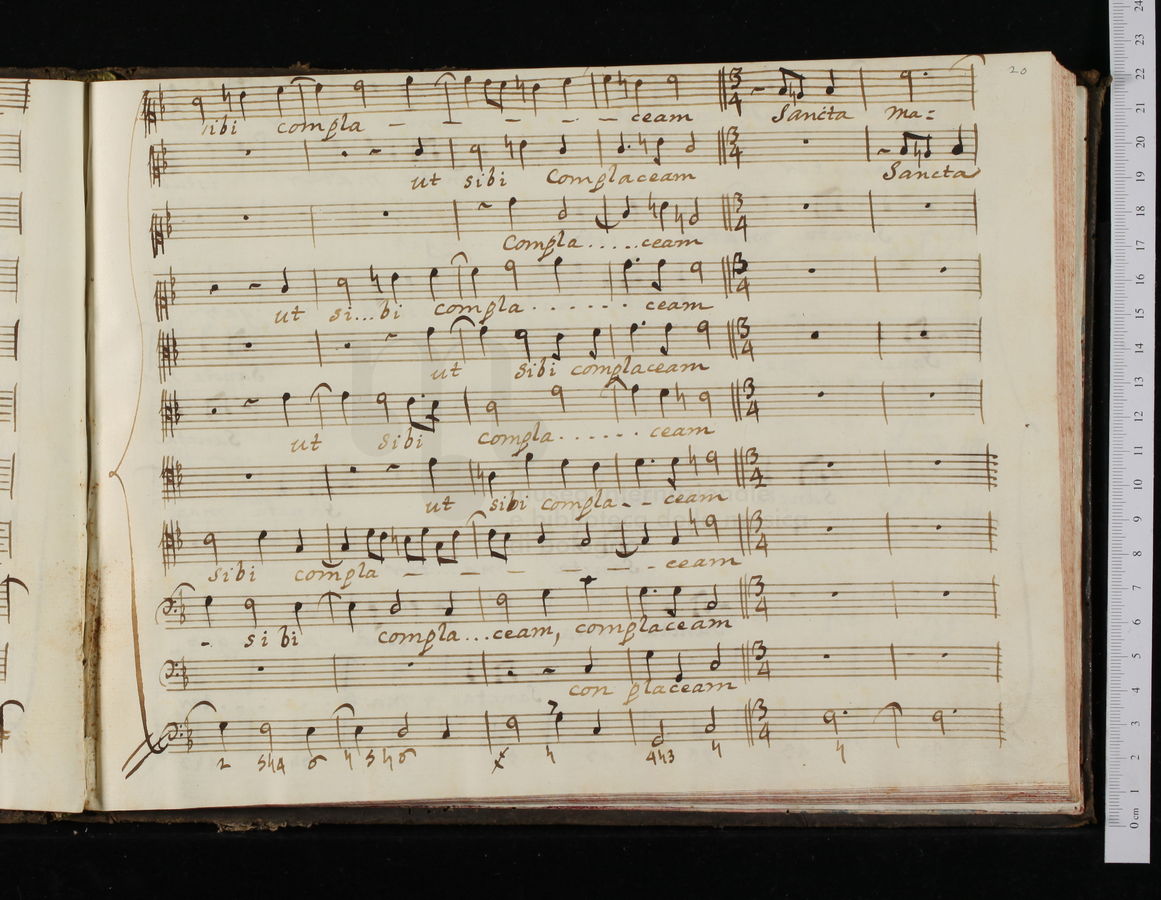 20
sibi compla - - - - - ceam Sancta ma=
3 4
ut sibi Complaceam Sancta
3 4
Compla.....ceam
3 4
ut si...bi compla . . . . . . ceam
3 4
ut sibi complaceam
3 4
ut sibi compla . . . . . . ceam
3 4
ut sibi compla - - ceam
3 4
sibi compla - - - - - - ceam
3 4
- sibi compla...ceam, complaceam
3 4
con placeam
3 4
3 4
2 5♮4 6 ♮ 5 ♮ 6 ♮ 4♮3 ♮ ♮
0 cm 1 2 3 4 5 6 7 8 9 10 11 12 13 14 15 16 17 18 19 20 21 22 23 24